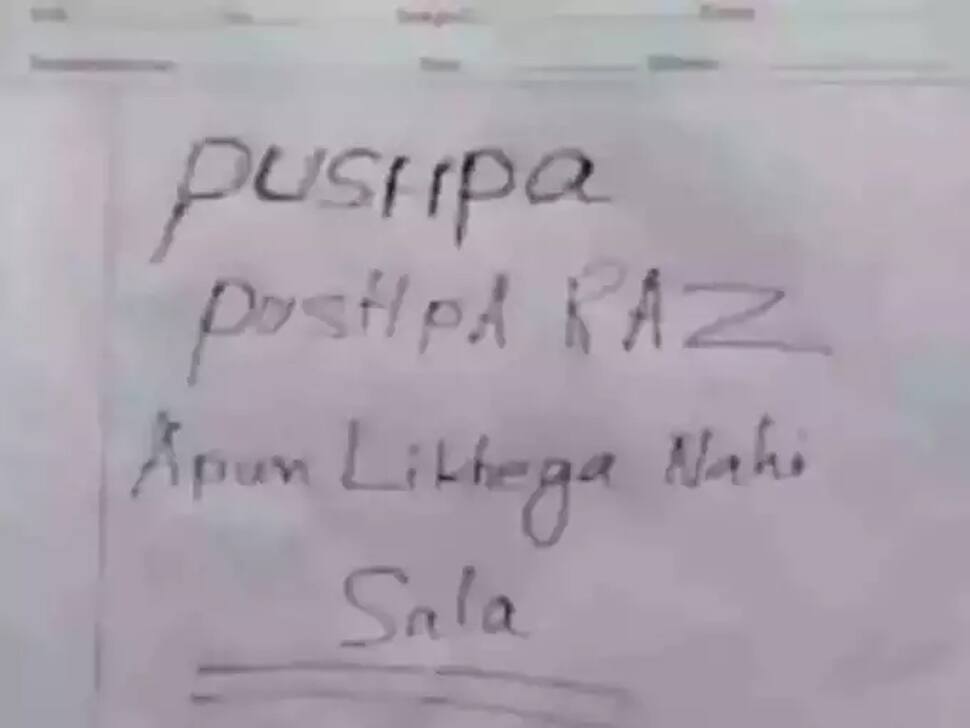 PUSHPa
PUSHPA RAZ
Apun Likhega Nahi
Sala